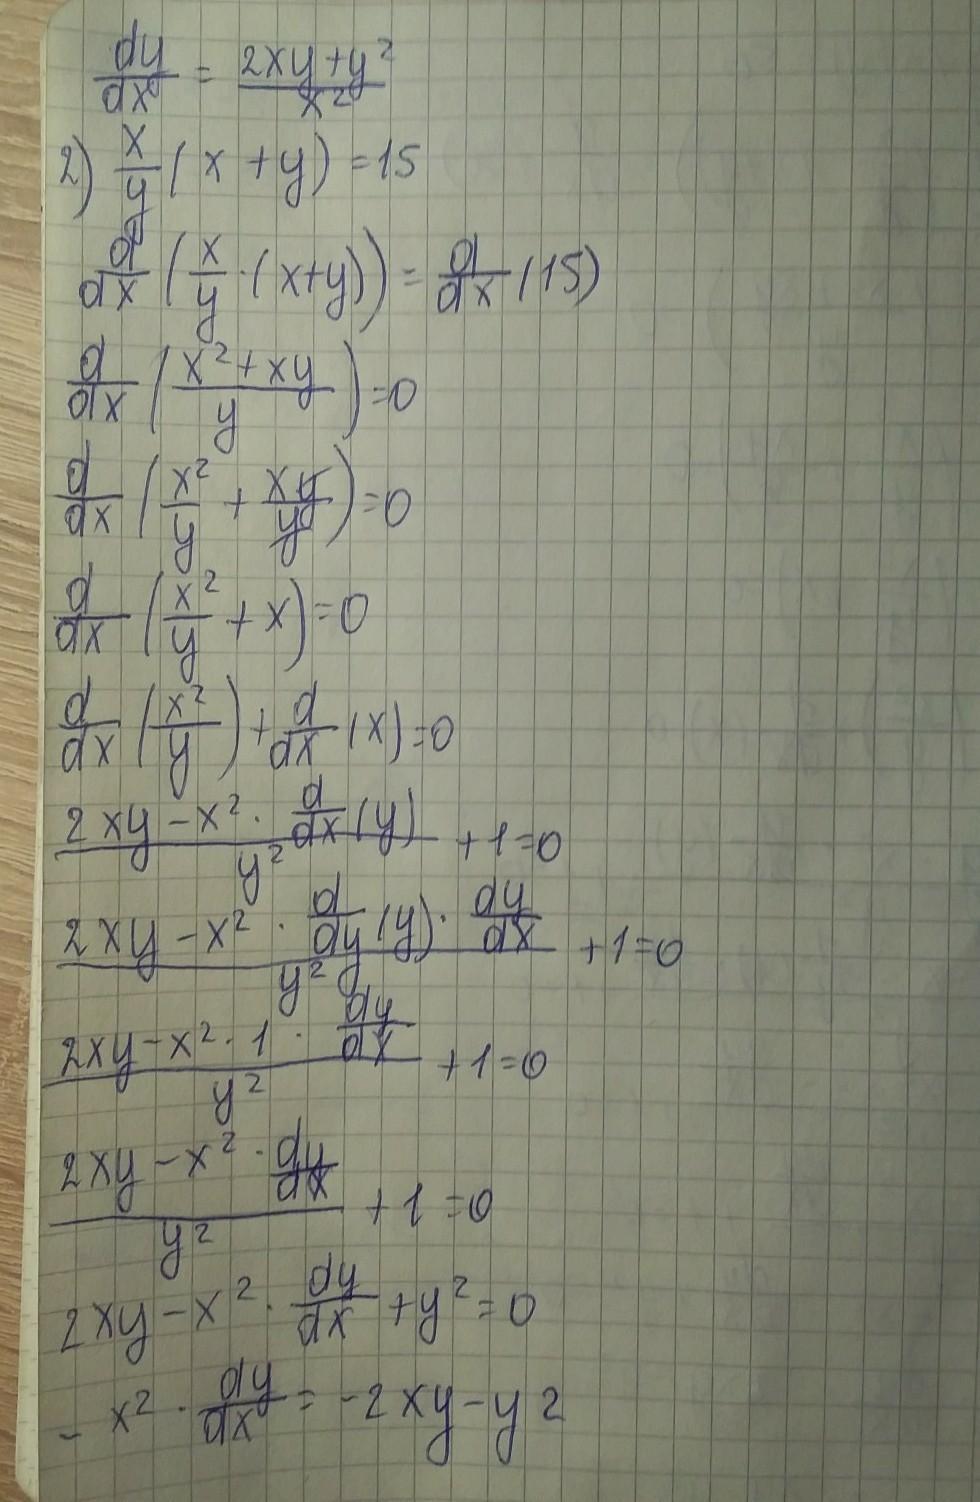 dy/dx = (2xy + y²)/x²
2) x/y (x + y) = 15
d/dx (x/y · (x+y)) = d/dx (15)
d/dx ((x² + xy)/y) = 0
d/dx (x²/y + xy/y) = 0
d/dx (x²/y + x) = 0
d/dx (x²/y) + d/dx (x) = 0
(2xy − x² · d/dx (y))/y² + 1 = 0
(2xy − x² · d/dy (y) · dy/dx)/y² + 1 = 0
(2xy − x² · 1 · dy/dx)/y² + 1 = 0
(2xy − x² · dy/dx)/y² + 1 = 0
2xy − x² · dy/dx + y² = 0
− x² · dy/dx = −2xy − y2